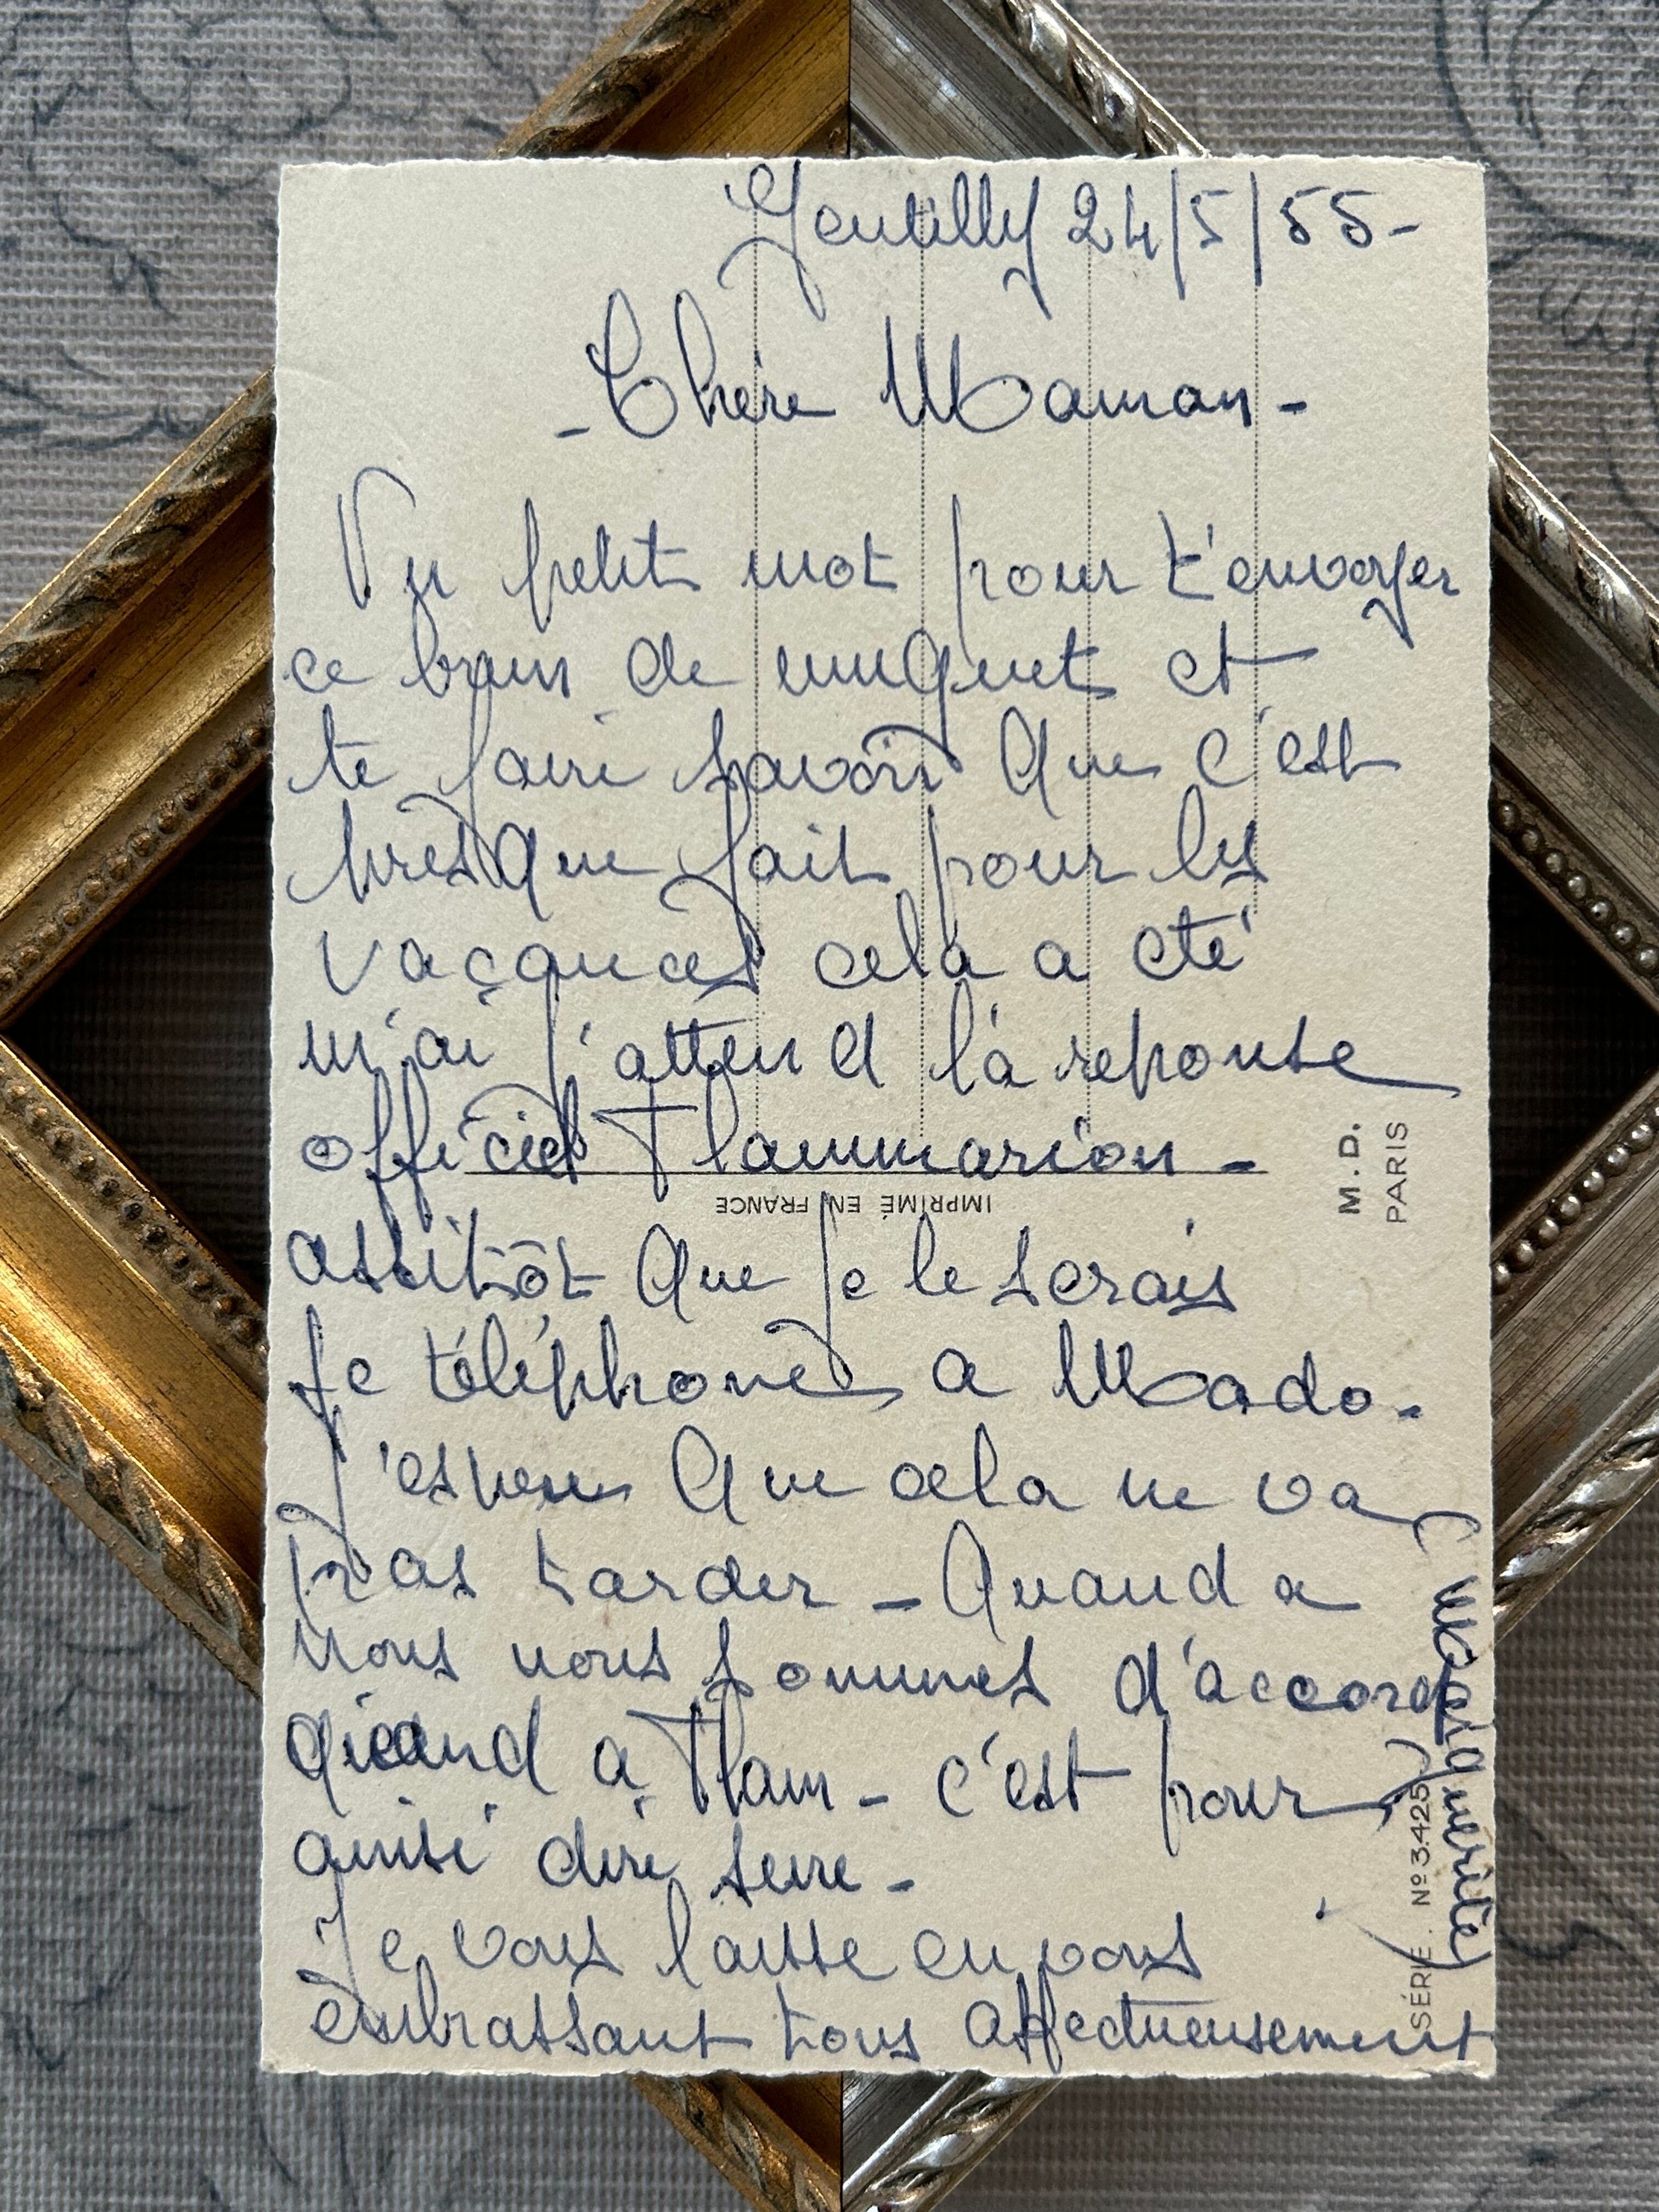 Gentilly 24/5/55-
- Chère Maman -
Un petit mot pour t'envoyer
ce brin de muguet et
te faire savoir que c'est
presque fait pour les
vacances cela a été
j'attend la reponse
officiel Flammarion -
assitôt que je le serais
je téléphone a Mado.
J'espere que cela ne va
pas tarder - Quand a
nous nous sommes d'accord
quand a Flam - c'est pour
ainsi dire sure -
Je vous laisse en vous
embrassant tous affectueusement
Marguerite
IMPRIMÉ EN FRANCE
M.D.
PARIS
SÉRIE. Nº 3.425